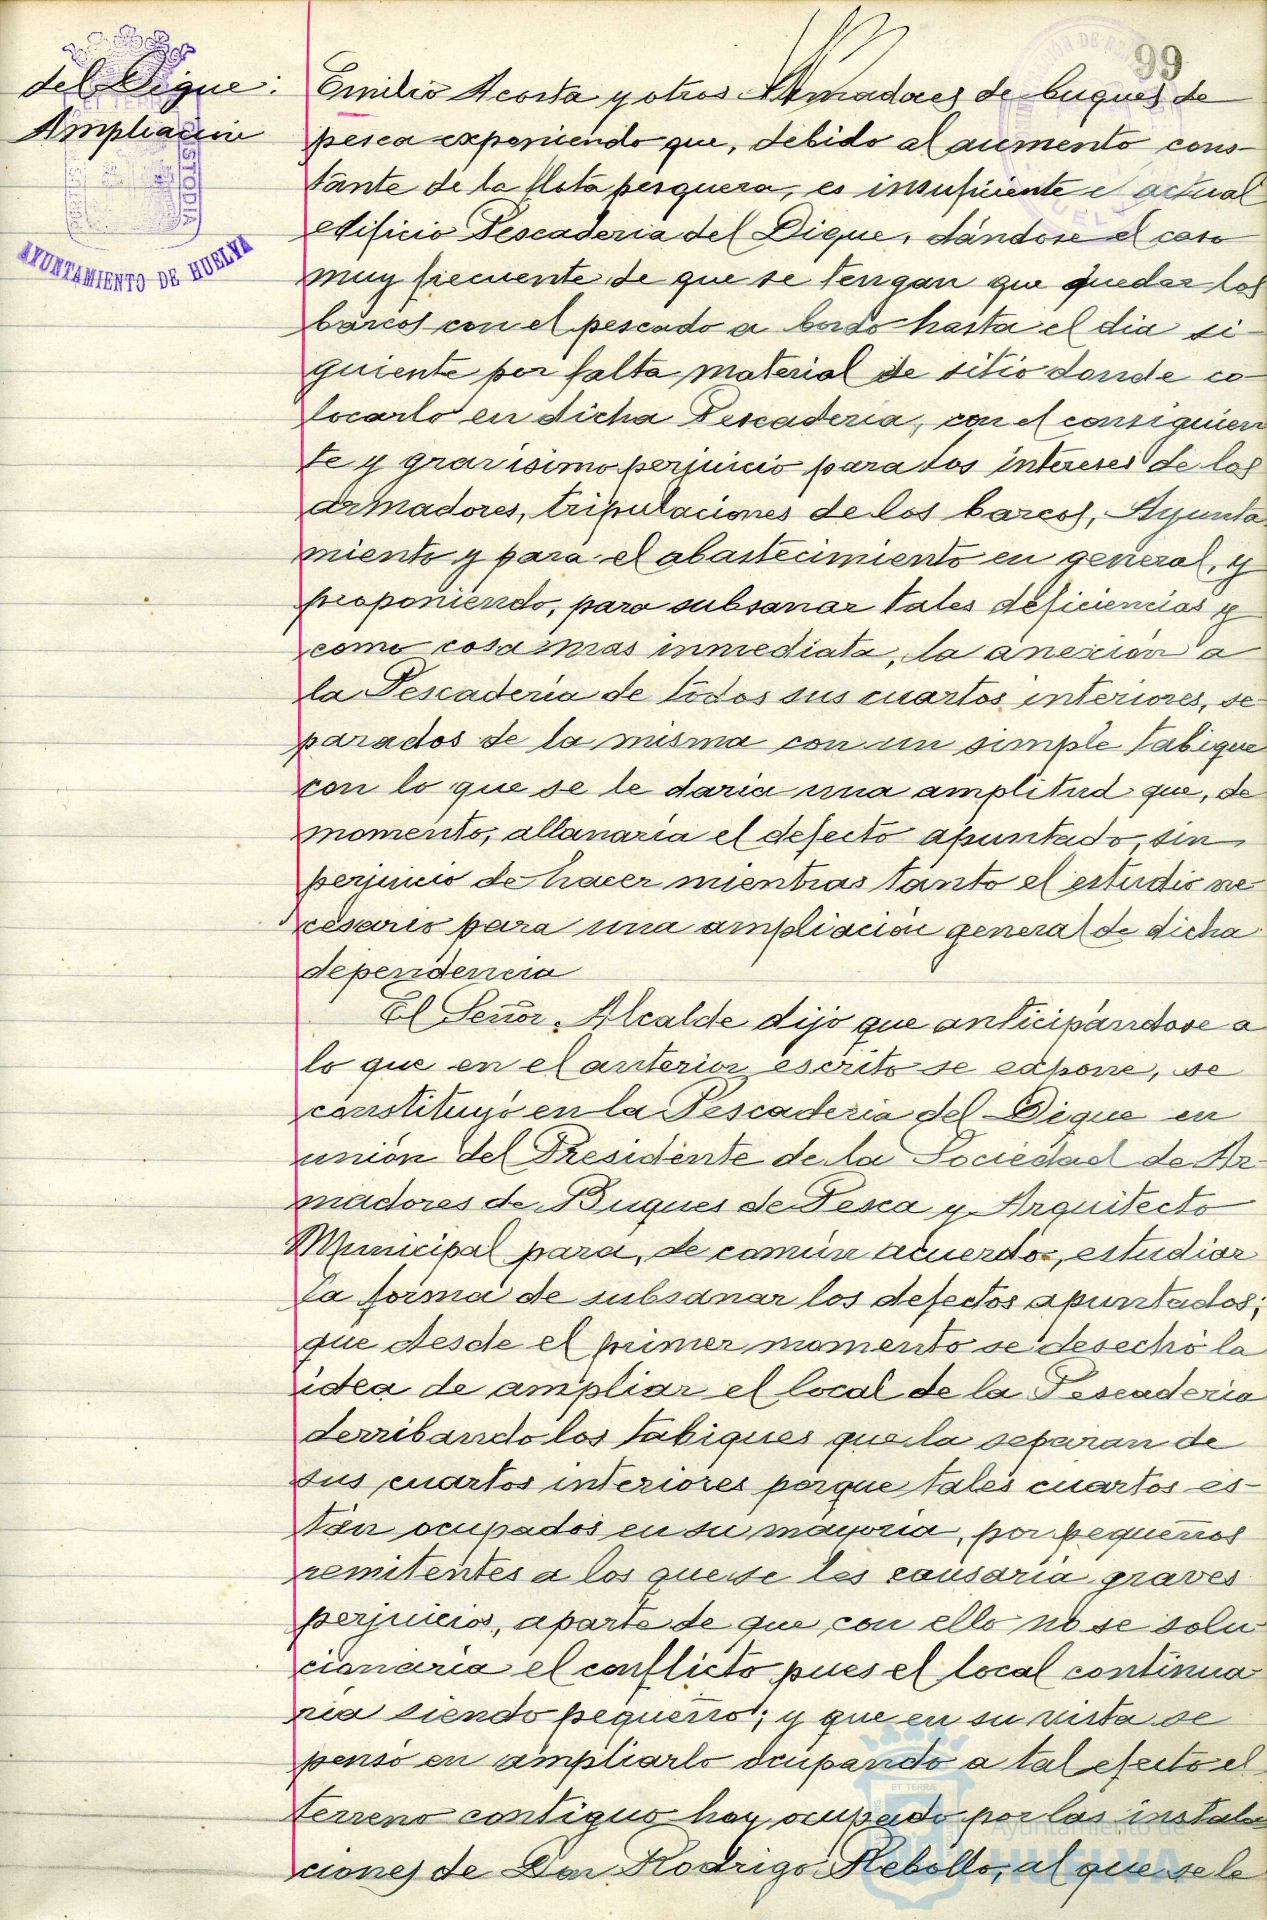 99
del Dique:
Ampliación
ET TERRÆ
CUSTODIA
AYUNTAMIENTO DE HUELVA
Emilio Acosta y otros Armadores de buques de
pesca exponiendo que, debido al aumento cons-
tante de la flota pesquera, es insuficiente el actual
edificio Pescaderia del Dique, dándose el caso
muy frecuente de que se tengan que quedar los
barcos con el pescado a bordo hasta el dia si-
guiente por falta material de sitio donde co-
locarlo en dicha Pescaderia, con el consiguien
te y gravisimo perjuicio para los intereses de los
armadores, tripulaciones de los barcos, Ayunta-
miento y para el abastecimiento en general, y
proponiendo, para subsanar tales deficiencias y
como cosa mas inmediata, la anexión a
la Pescaderia de todos sus cuartos interiores, se-
parados de la misma con un simple tabique
con lo que se le daria una amplitud que, de
momento, allanaria el defecto apuntado, sin
perjuicio de hacer mientras tanto el estudio ne-
cesario para una ampliación general de dicha
dependencia
El Señor Alcalde dijo que anticipándose a
lo que en el anterior escrito se expone, se
constituyó en la Pescaderia del Dique en
unión del Presidente de la Sociedad de Ar-
madores de Buques de Pesca y Arquitecto
Municipal para, de común acuerdo, estudiar
la forma de subsanar los defectos apuntados;
que desde el primer momento se desechó la
idea de ampliar el local de la Pescaderia
derribando los tabiques que la separan de
sus cuartos interiores porque tales cuartos es-
tán ocupados en su mayoria, por pequeños
remitentes a los que se les causaria graves
perjuicios, aparte de que con ello no se solu-
cionaria el conflicto pues el local continua
ria siendo pequeño; y que en su vista se
pensó en ampliarlo ocupando a tal efecto el
terreno contiguo hoy ocupado por las instala
ciones de Don Rodrigo Rebollo, al que se le
ET TERRÆ
Ayuntamiento de
HUELVA